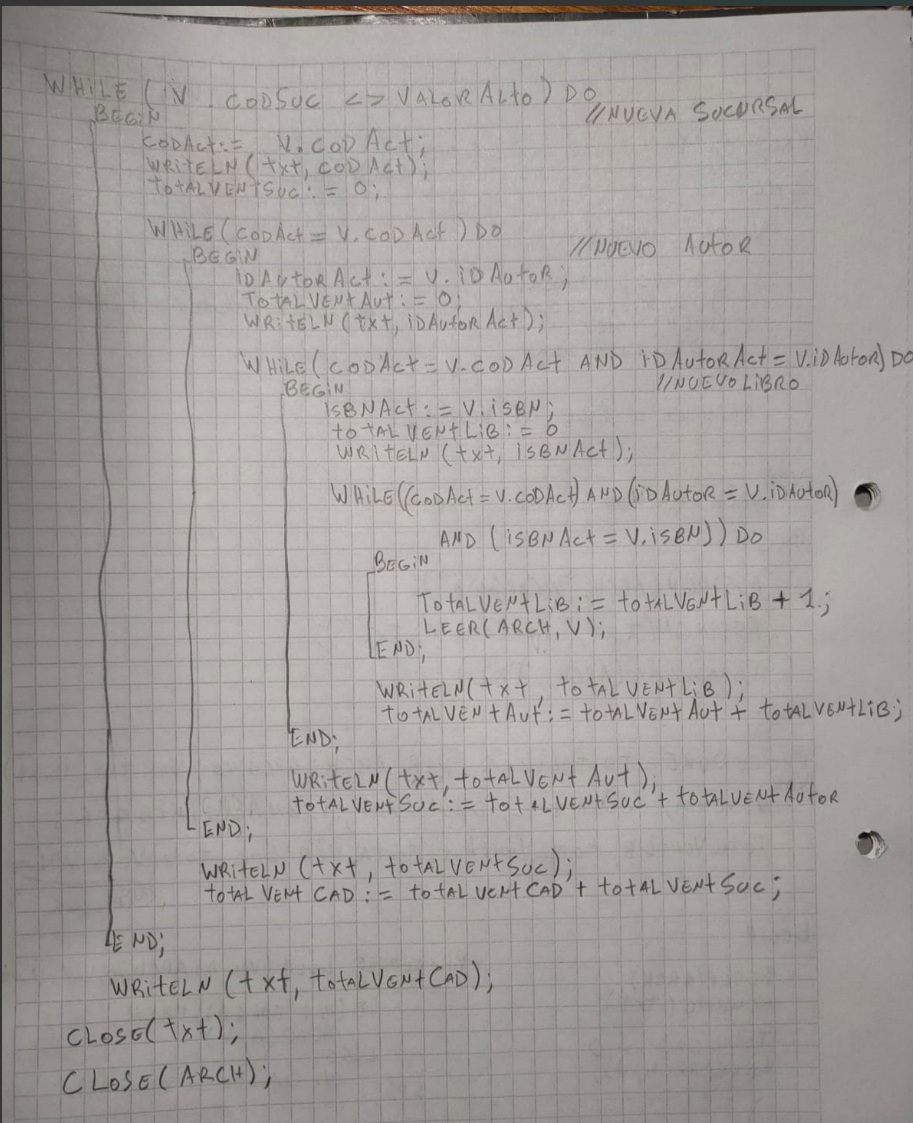 WHILE (V. CODSUC <> VALORALTO) DO
BEGIN //NUEVA SUCURSAL
CODACT:= V.CODACT;
WRITELN(txt, CODACT);
TOTALVENTSUC:= 0;
WHILE(CODACT = V.CODACT) DO
BEGIN //NUEVO AUTOR
IDAUTORACT:= V.IDAUTOR;
TOTALVENTAUT:= 0;
WRITELN(txt, IDAUTORACT);
WHILE(CODACT = V.CODACT AND IDAUTORACT = V.IDAUTOR) DO
BEGIN //NUEVO LIBRO
ISBNACT:= V.ISBN;
TOTALVENTLIB:= 0
WRITELN(txt, ISBNACT);
WHILE((CODACT = V.CODACT) AND (IDAUTOR = V.IDAUTOR)
AND (ISBNACT = V.ISBN)) DO
BEGIN
TOTALVENTLIB:= TOTALVENTLIB + 1;
LEER(ARCH, V);
END;
WRITELN(txt, TOTALVENTLIB);
TOTALVENTAUT:= TOTALVENTAUT + TOTALVENTLIB;
END;
WRITELN(txt, TOTALVENTAUT);
TOTALVENTSUC:= TOTALVENTSUC + TOTALVENTAUTOR
END;
WRITELN (txt, TOTALVENTSUC);
TOTAL VENT CAD:= TOTAL VENT CAD + TOTAL VENTSUC;
END;
WRITELN (txt, TOTALVENTCAD);
CLOSE(txt);
CLOSE(ARCH);